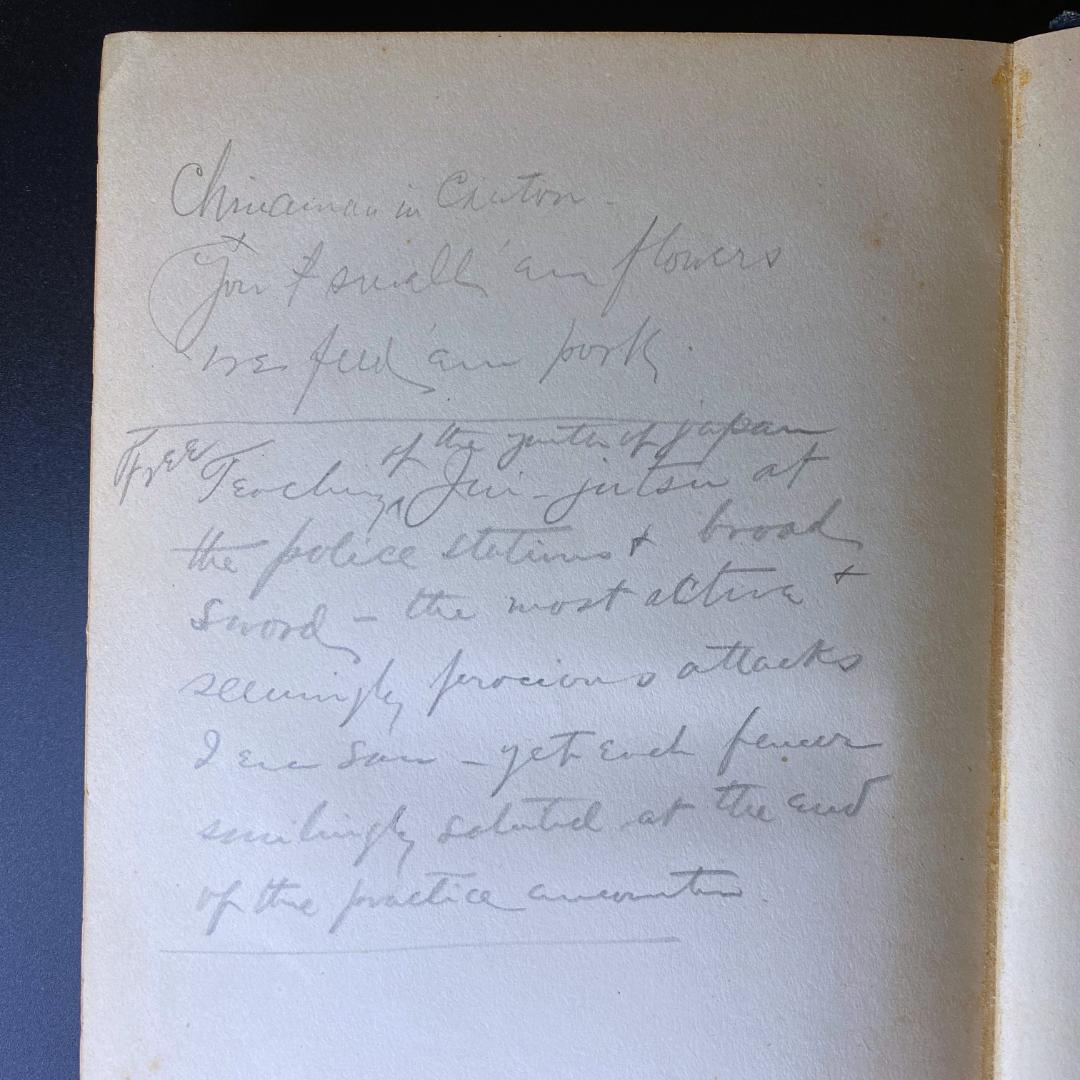 Chinaman in Canton -
You & smell 'em flowers
we feed 'em pork.
of the youth of Japan
Free Teaching ^ Jui-jutsu at
the police stations & broad
sword - the most active &
seemingly ferocious attacks
I ever saw - yet each fencer
smilingly saluted at the end
of the practice encounter